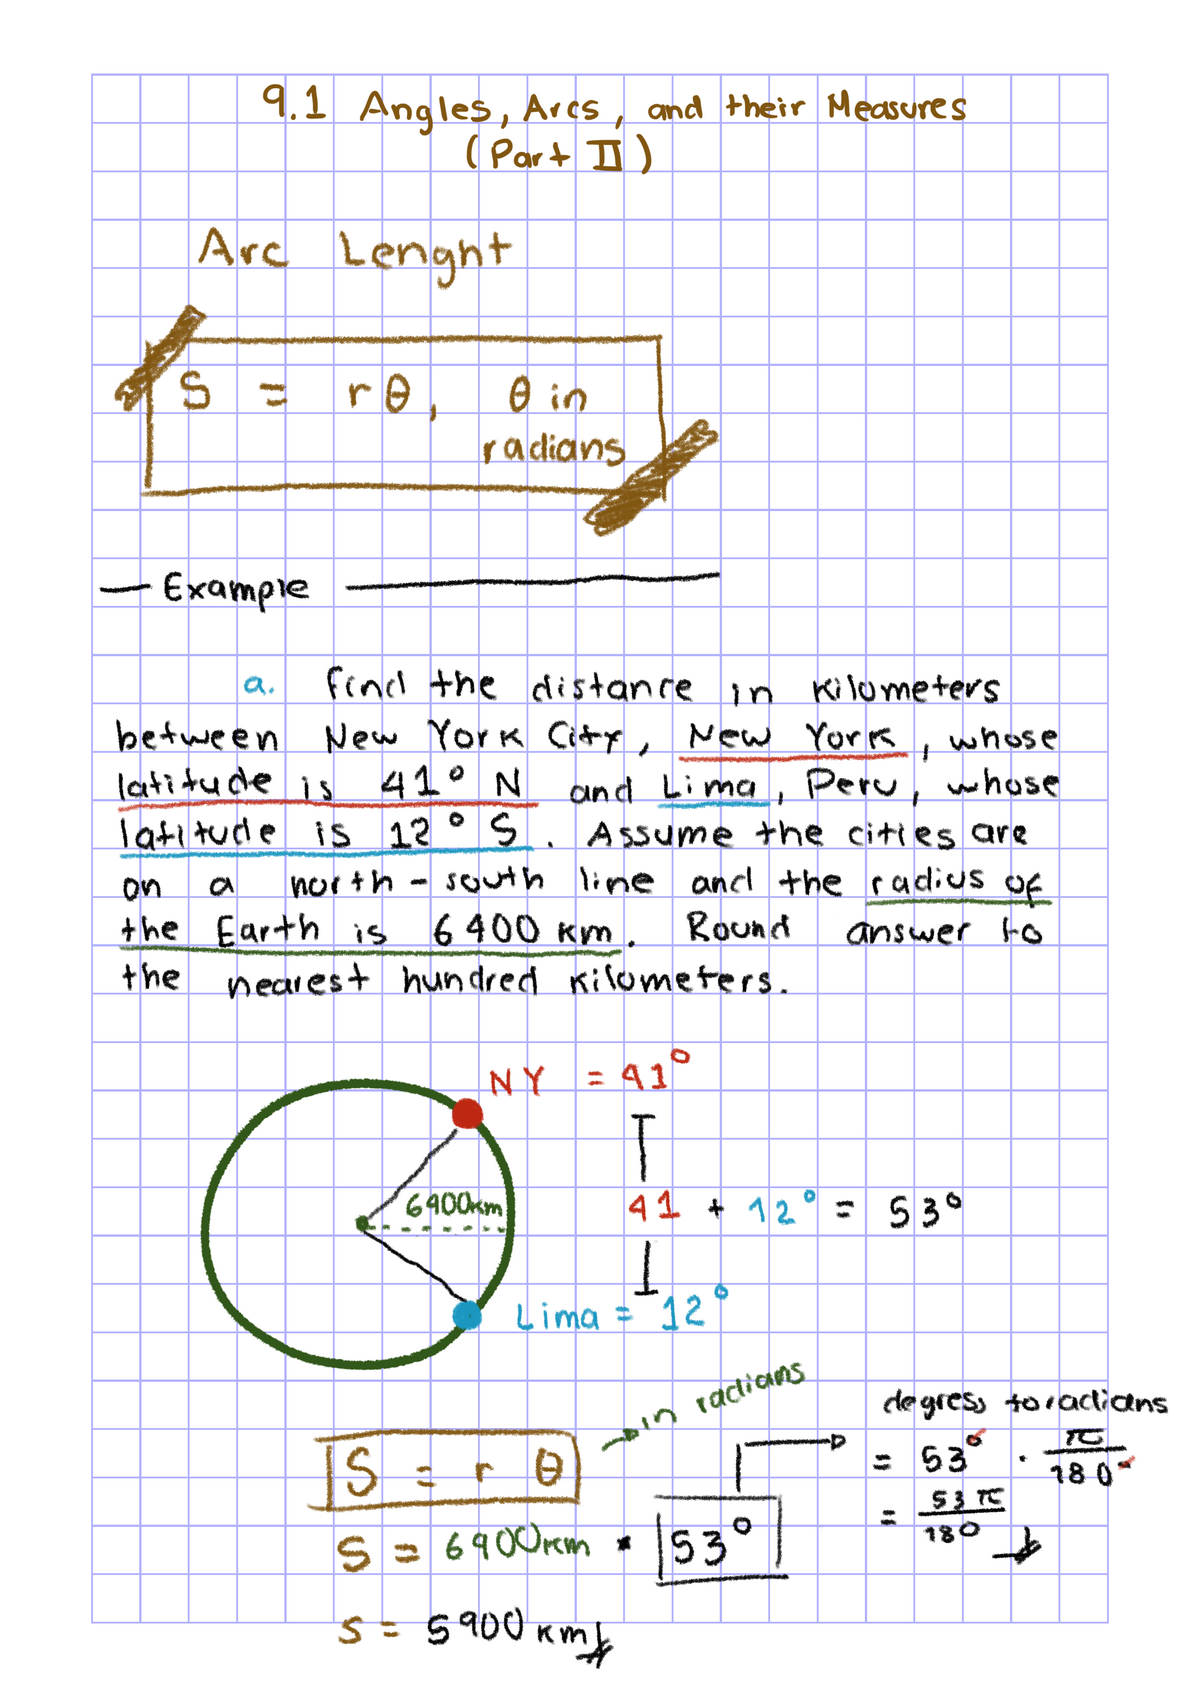 9.1 Angles, Arcs, and their Measures
(Part II)
Arc Lenght
S = rθ, θ in
radians
Example
a. find the distance in kilometers
between New York City, New York, whose
latitude is 41° N and Lima, Peru, whose
latitude is 12° S. Assume the cities are
on a north-south line and the radius of
the Earth is 6400 km. Round answer to
the nearest hundred kilometers.
NY = 41°
6400km
41 + 12° = 53°
Lima = 12°
in radians
degress to radians
S = r θ
= 53° · π/180°
= 53π/180
S = 6400km * 53°
S = 5900 km